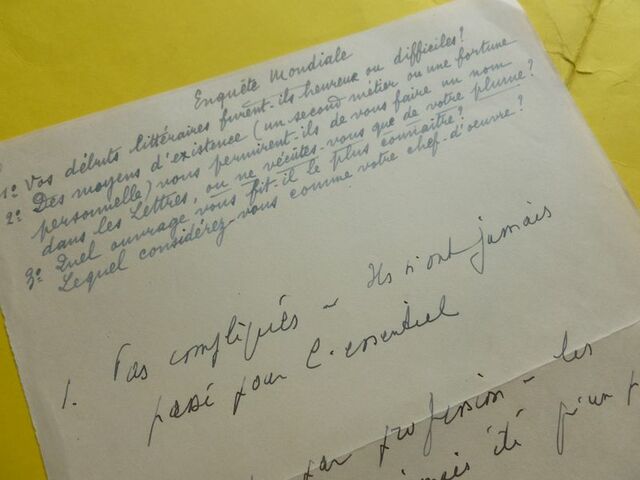 Enquête Mondiale
1º Vos débuts littéraires furent-ils heureux ou difficiles?
2º Des moyens d'existence (un second métier ou une fortune
personnelle) vous permirent-ils de vous faire un nom
dans les Lettres, ou ne vécûtes-vous que de votre plume?
3º Quel ouvrage vous fit-il le plus connaître?
Lequel considérez-vous comme votre chef-d'oeuvre?
1. Pas compliqués - Ils n'ont jamais
passé pour l'essentiel
par profession - les
été qu'un